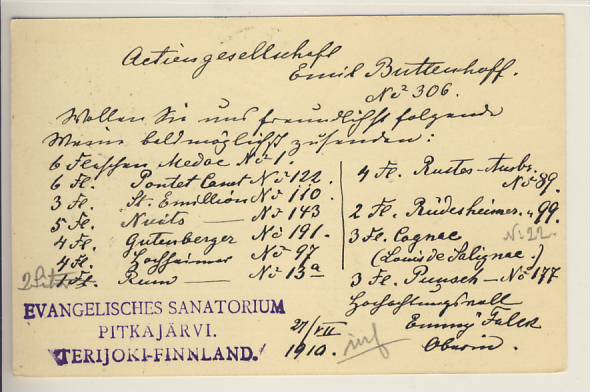 Actiengesellschaft
Emil Buttenhoff.
No 306.
Wollen Sie uns freundlichst folgende
Weine baldmöglichst zusenden:
6 Flaschen Medoc No 1
6 Fl. Pontet Canet No 122.
3 Fl. St. Emillion No 110.
5 Fl. Nuits — No 143
4 Fl. Gutenberger No 191.
4 Fl. Hochheimer No 97
2 Fl. Rum — No 13a
4 Fl. Rustes-Ausbr. No 89.
2 Fl. Rüdesheimer " 99.
3 Fl. Cognac No 22.
(Louis de Salignac.)
3 Fl. Punsch — No 177
Hochachtungsvoll
Emmy Falck
Oberin.
27/VII
1910.
EVANGELISCHES SANATORIUM
PITKAJÄRVI.
TERIJOKI-FINNLAND.